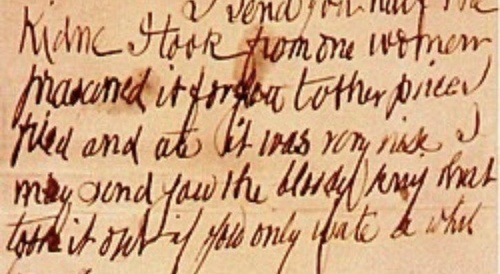 I send you half the
Kidne I took from one women
prasarved it for you tother piece I
fried and ate it was very nise I
may send you the bloody knif that
took it out if you only wate a whil